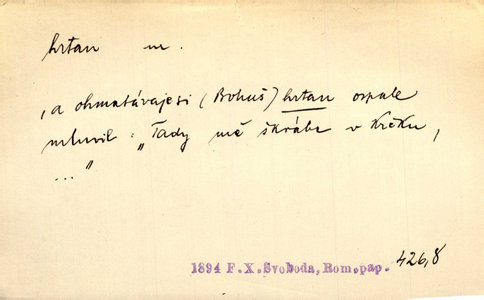 hrtan m.
„a ohmatávaje si (Bohuš) hrtan ospale
mluvil: „Tady mě škrábe v krčku,
..."
1894 F.X.Svoboda, Rom.pap. 426,8